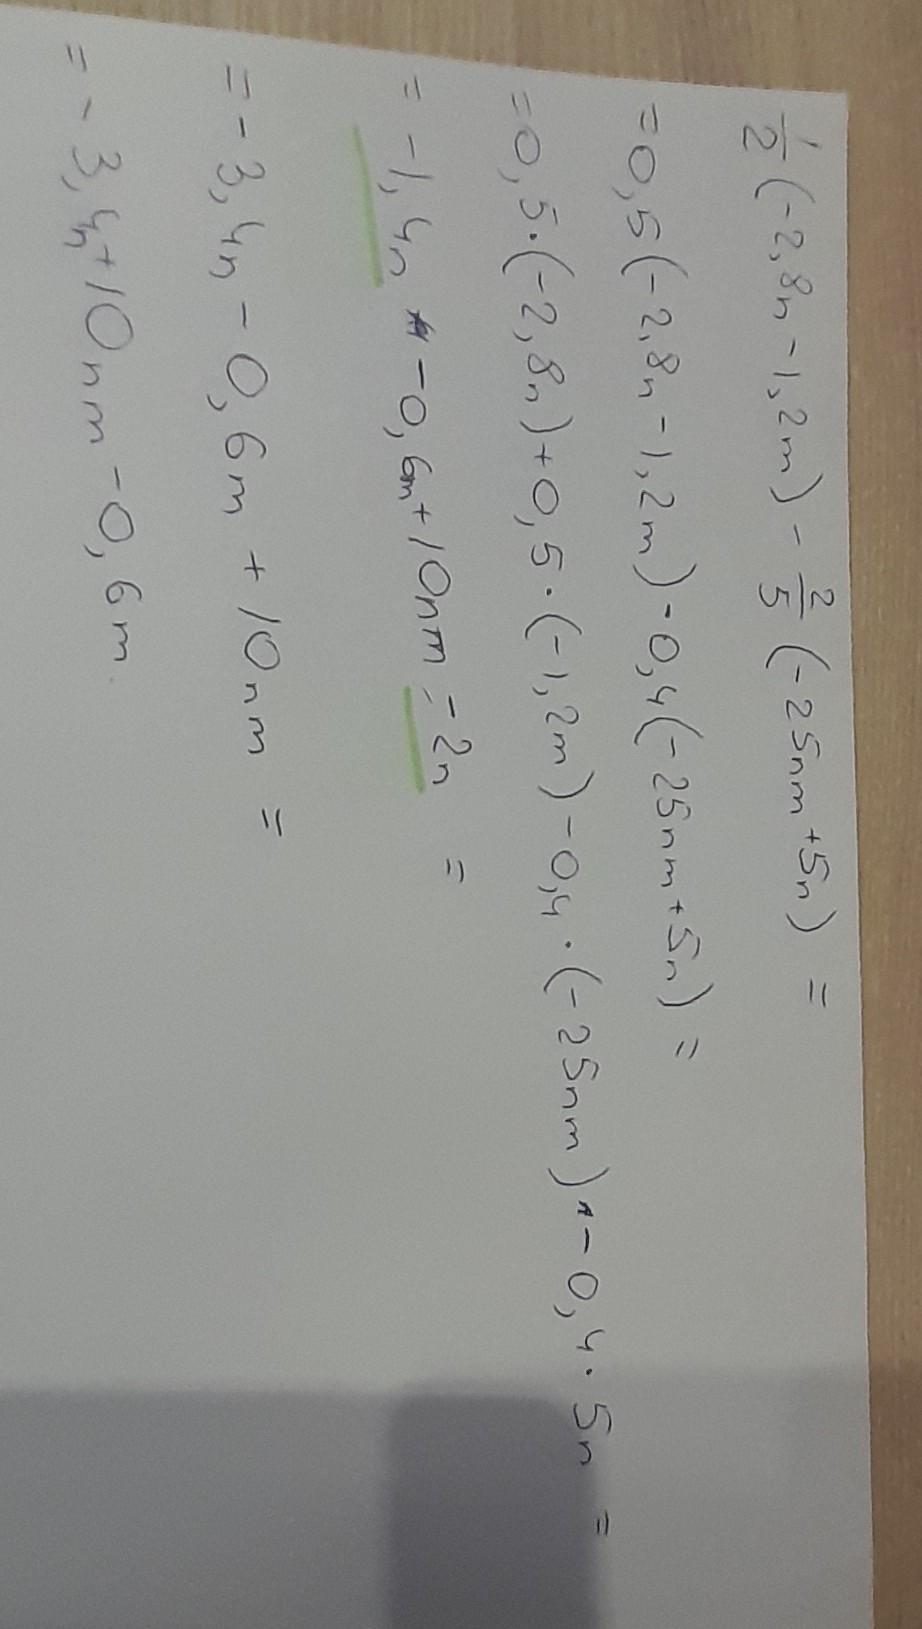 1/2 (-2,8n -1,2m) - 2/5 (-25nm +5n) =
=0,5(-2,8n -1,2m) -0,4(-25nm+5n) =
=0,5·(-2,8n)+0,5·(-1,2m) -0,4·(-25nm) -0,4·5n =
= -1,4n -0,6m+10nm -2n =
= -3,4n -0,6m +10nm =
= -3,4n+10nm -0,6m.